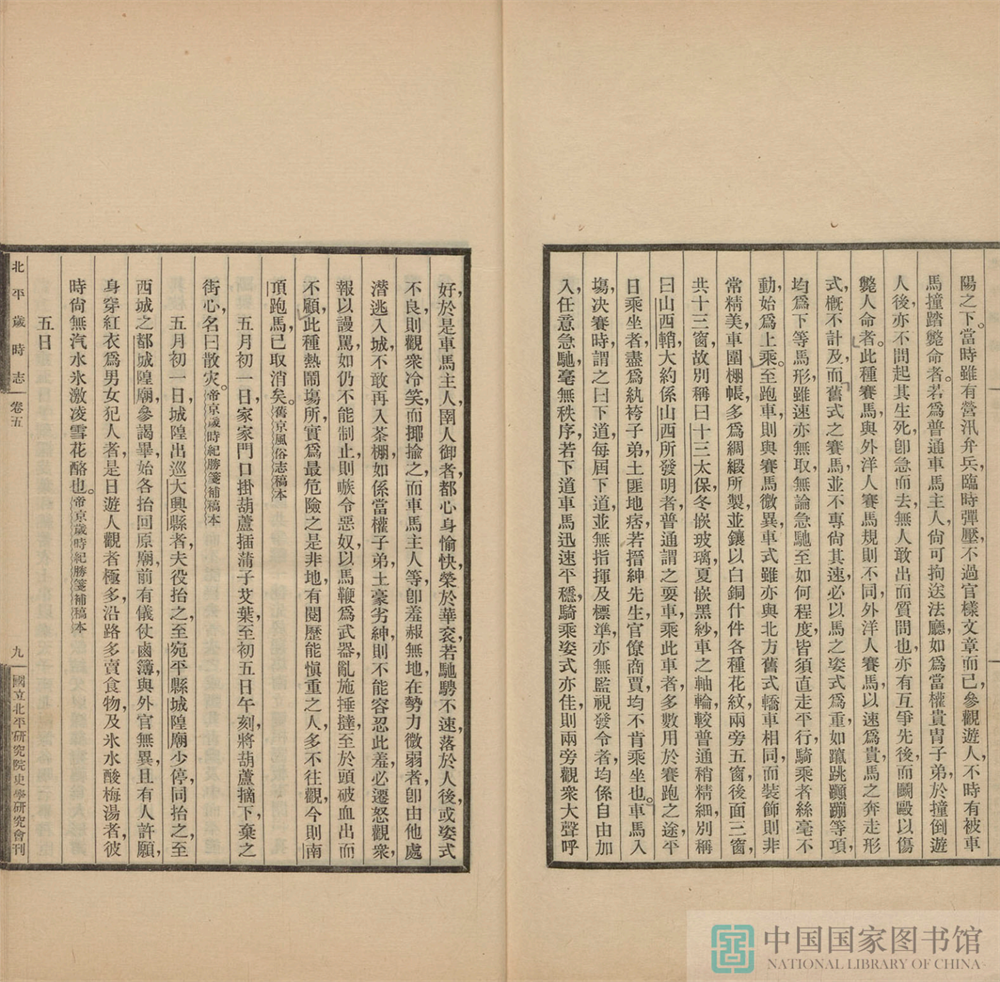 陽之下當時雖有營汛弁兵臨時彈壓不過官樣文章而已參觀遊人不時有被車
馬撞踏斃命者若爲普通車馬主人尙可拘送法廳如爲當權貴胄子弟於撞倒遊
人後亦不問起其生死卽急而去無人敢出而質問也亦有互爭先後而鬭毆以傷
斃人命者此種賽馬與外洋人賽馬規則不同外洋人賽馬以速爲貴馬之奔走形
式槪不計及而舊式之賽馬並不專尙其速必以馬之姿式爲重如躥跳躝蹦等項
均爲下等馬形雖速亦無取無論急馳至如何程度皆須直走平行騎乘者絲毫不
動始爲上乘至跑車則與賽馬微異車式雖亦與北方舊式轎車相同而裝飾則非
常精美車圍棚帳多爲綢緞所製並鑲以白銅什件各種花紋兩旁五窗後面三窗
共十三窗故別稱曰十三太保冬嵌玻璃夏嵌黑紗車之軸輪較普通稍精細別稱
曰山西鞘大約係山西所發明者普通謂之耍車乘此車者多數用於賽跑之途平
日乘坐者盡爲紈袴子弟土匪地痞若搢紳先生官僚商賈均不肯乘坐也車馬入
塲決賽時謂之曰下道每屆下道並無指揮及標準亦無監視發令者均係自由加
入任意急馳毫無秩序若下道車馬迅速平穩騎乘姿式亦佳則兩旁觀衆大聲呼
好於是車馬主人圉人御者都心身愉快榮於華袞若馳騁不速落於人後或姿式
不良則觀衆冷笑而揶揄之而車馬主人等卽羞赧無地在勢力微弱者卽由他處
潛逃入城不敢再入茶棚如係當權子弟土豪劣紳則不能容忍此羞必遷怒觀衆
報以謾罵如仍不能制止則嗾令惡奴以馬鞭爲武器亂施捶撻至於頭破血出而
不顧此種熱鬧塲所實爲最危險之是非地有閱歷能愼重之人多不往觀今則南
頂跑馬已取消矣舊京風俗志稿本
五月初一日家家門口掛葫蘆插蒲子艾葉至初五日午刻將葫蘆摘下棄之
街心名曰散灾帝京歲時紀勝箋補稿本
五月初一日城隍出巡大興縣者夫役抬之至宛平縣城隍廟少停同抬之至
西城之都城隍廟參謁畢始各抬回原廟前有儀仗鹵簿與外官無異且有人許願
身穿紅衣爲男女犯人者是日遊人觀者極多沿路多賣食物及氷水酸梅湯者彼
時尙無汽水氷激凌雪花酪也帝京歲時紀勝箋補稿本
五日
北平歲時志 卷五 九 國立北平硏究院史學硏究會刊
中国国家图书馆
NATIONAL LIBRARY OF CHINA